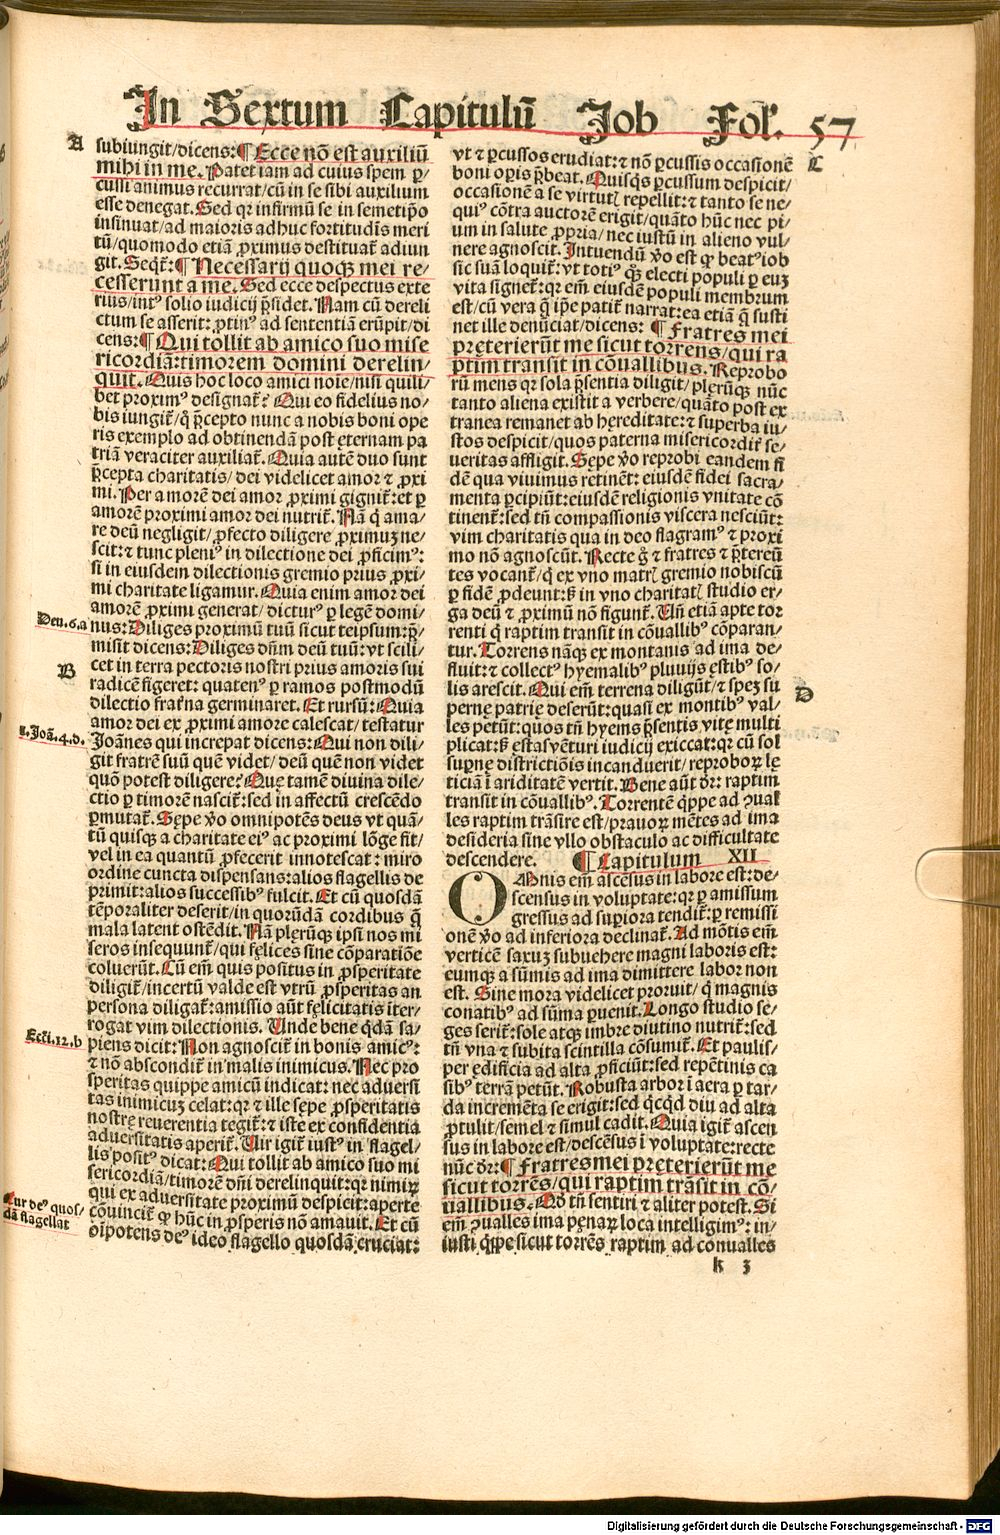 In Sextum Capitulū Job Fol. 57
A
subiungit/dicens: ¶ Ecce nō est auxiliū
mihi in me. Patet iam ad cuius spem ꝑ/
cussi animus recurrat/cū in se sibi auxilium
esse denegat. Sed qꝛ infirmū se in semetip̄o
insinuat/ad maioris adhuc fortitudis meri
tū/quomodo etiā ꝓximus destituat̄ adiun
git. Seqt̄: ¶ Necessarij quoqꝫ mei re/
cesserunt a me. Sed ecce despectus exte
rius/intꝰ solio iudicij p̄sidet. Nam cū dereli
ctum se asserit: ꝓtinꝰ ad sententiā erūpit/di
cens: ¶ Qui tollit ab amico suo mise
ricordiā: timorem domini derelin/
quit. Quis hoc loco amici noīe/nisi quili
bet proximꝰ designat̄? Qui eo fidelius no/
bis iungit̄/q̄ p̄cepto nunc a nobis boni ope
ris exemplo ad obtinendā post eternam pa
triā veraciter auxiliat̄. Quia autē duo sunt
p̄cepta charitatis/dei videlicet amor ⁊ ꝓxi
mi. Per amorē dei amor ꝓximi gignit̄: et ꝑ
amorē proximi amor dei nutrit̄. Nā q̄ ama/
re deū negligit/ꝓfecto diligere ꝓximuꝫ ne/
scit: ⁊ tunc pleniꝰ in dilectione dei ꝓficimꝰ:
si in eiusdem dilectionis gremio prius ꝓxi/
mi charitate ligamur. Quia enim amor dei
amorē ꝓximi generat/dicturꝰ ꝑ legē domi/
Deu. 6. a
nus: Diliges proximū tuū sicut teipsum: p̄/
misit dicens: Diliges dn̄m deū tuū: vt scili/
B
cet in terra pectoris nostri prius amoris sui
radicē figeret: quatenꝰ ꝑ ramos postmodū
dilectio frat̄na germinaret. Et rursū: Quia
amor dei ex ꝓximi amore calescat/testatur
1. Joā. 4. d.
Joānes qui increpat dicens: Qui non dili/
git fratrē suū quē videt/deū quē non videt
quō potest diligere? Quę tamē diuina dile/
ctio ꝑ timorē nascit̄: sed in affectū crescēdo
ꝑmutat̄. Sępe v̄o omnipotēs deus vt quā/
tū quisqꝫ a charitate eiꝰ ac proximi lōge fit/
vel in ea quantū ꝓfecerit innotescat: miro
ordine cuncta dispensans: alios flagellis de
primit: alios successibꝰ fulcit. Et cū quosdā
tēporaliter deserit/in quorūdā cordibus q̄
mala latent ostēdit. Nā plerūqꝫ ipsi nos mi
seros insequunt̄/qui fęlices sine cōparatiōe
coluerūt. Cū em̄ quis positus in ꝓsperitate
diligit̄/incertū valde est vtrū ꝓsperitas an
persona diligat̄: amissio aūt fęlicitatis īter/
rogat vim dilectionis. Unde bene q̄dā sa/
Ecci. 12. b
piens dicit: Non agnoscit̄ in bonis amicꝰ:
⁊ nō abscondit̄ in malis inimicus. Nec pro
speritas quippe amicū indicat: nec aduersi
tas inimicuꝫ celat: qꝛ ⁊ ille sępe ꝓsperitatis
nostrę reuerentia tegit̄: ⁊ iste ex confidentia
aduersitatis aperit̄. Uir igit̄ iustꝰ in flagel/
lis positꝰ dicat: Qui tollit ab amico suo mi
sericordiā/timorē dn̄i derelinquit: qꝛ nimiꝝ
Cur deꝰ quos/
dā flagellat
qui ex aduersitate proximū despicit: aperte
cōuincit̄ ꝙ hūc in ꝓsperis nō amauit. Et cū
oīpotens deꝰ ideo flagello quosdā eruciat:
vt ⁊ ꝑcussos erudiat: ⁊ nō ꝑcussis occasionē
C
boni oꝑis p̄beat. Quisq̄s ꝑcussum despicit/
occasionē a se virtutꝭ repellit: ⁊ tanto se ne/
quiꝰ cōtra auctorē erigit/quāto hūc nec pi/
um in salute ꝓpria/nec iustū in alieno vul/
nere agnoscit. Intuendū v̄o est ꝙ beatꝰ iob
sic suā loquit̄: vt totiꝰ q̄s electi populi ꝑ euꝫ
vita signet̄: qꝛ em̄ eiusdē populi membrum
est/cū vera q̄ ip̄e patit̄ narrat: ea etiā q̄ susti
net ille denūciat/dicens: ¶ Fratres mei
pręterierūt me sicut torrens/qui ra
ptim transit in cōuallibus. Reprobo
rū mens qꝛ sola p̄sentia diligit/plerūqꝫ nūc
tanto aliena existit a verbere/quāto post ex
tranea remanet ab hęreditate: ⁊ superba iu/
stos despicit/quos paterna misericordit̄ se/
ueritas affligit. Sępe v̄o reprobi eandem fi
dē qua viuimus retinēt: eiusdē fidei sacra/
menta ꝑcipiūt: eiusdē religionis vnitate cō
tinent̄: sed tn̄ compassionis viscera nesciūt:
vim charitatis qua in deo flagramꝰ ⁊ proxi
mo nō agnoscūt. Recte g̊ ⁊ fratres ⁊ p̄tereū
tes vocant̄/q̄ ex vno matrꝭ gremio nobiscū
ꝑ fidē ꝓdeunt: sꝫ in vno charitatꝭ studio er/
ga deū ⁊ ꝓximū nō figunt̄. Un̄ etiā apte tor
renti q̄ raptim transit in cōuallibꝰ cōparan/
tur. Torrens nāqꝫ ex montanis ad ima de/
fluit: ⁊ collectꝰ hyemalibꝰ pluuijs ęstibꝰ so/
lis arescit. Qui em̄ terrena diligūt/⁊ speꝫ su
D
pernę patrię deserūt: quasi ex montibꝰ val/
les petūt: quos tn̄ hyems p̄sentis vitę multi
plicat: sꝫ ęstas vēturi iudicij exiccat: qꝛ cū sol
suꝑnę districtiōis incanduerit/reproboꝝ lę
ticiā ī ariditatē vertit. Bene aūt dr̄: raptim
transit in cōuallibꝰ. Torrentē q̄ppe ad ꝯual
les raptim trāsire est/prauoꝝ mētes ad ima
desideria sine vllo obstaculo ac difficultate
descendere. ¶ Capitulum XII
OMnis em̄ ascēsus in labore est: de/
scensus in voluptate: qꝛ ꝑ amissum
gressus ad suꝑiora tendit̄: ꝑ remissi
onē v̄o ad inferiora declinat̄. Ad mōtis em̄
verticē saxuꝫ subuehere magni laboris est:
eumqꝫ a sūmis ad ima dimittere labor non
est. Sine mora videlicet proruit/q̄ magnis
conatibꝰ ad sūma ꝑuenit. Longo studio se/
ges serit̄: sole atqꝫ imbre diutino nutrit̄: sed
tn̄ vna ⁊ subita scintilla cōsumit̄. Et paulis/
per ędificia ad alta ꝓficiūt: sed repētinis ca
sibꝰ terrā petūt. Robusta arbor ī aera ꝑ tar/
da incremēta se erigit: sed q̄cq̄d diu ad alta
ꝓtulit/semel ⁊ simul cadit. Quia igit̄ ascen
sus in labore est/descēsus ī voluptate: recte
nūc dr̄: ¶ Fratres mei pręterierūt me
sicut torrēs/qui raptim trāsit in cō/
uallibus. Qd̄ tn̄ sentiri ⁊ aliter potest. Si
em̄ ꝯualles ima pęnaꝝ loca intelligimꝰ: in/
iusti q̄ppe sicut torrēs raptim ad conualles
k 3
Digitalisierung gefördert durch die Deutsche Forschungsgemeinschaft - DFG